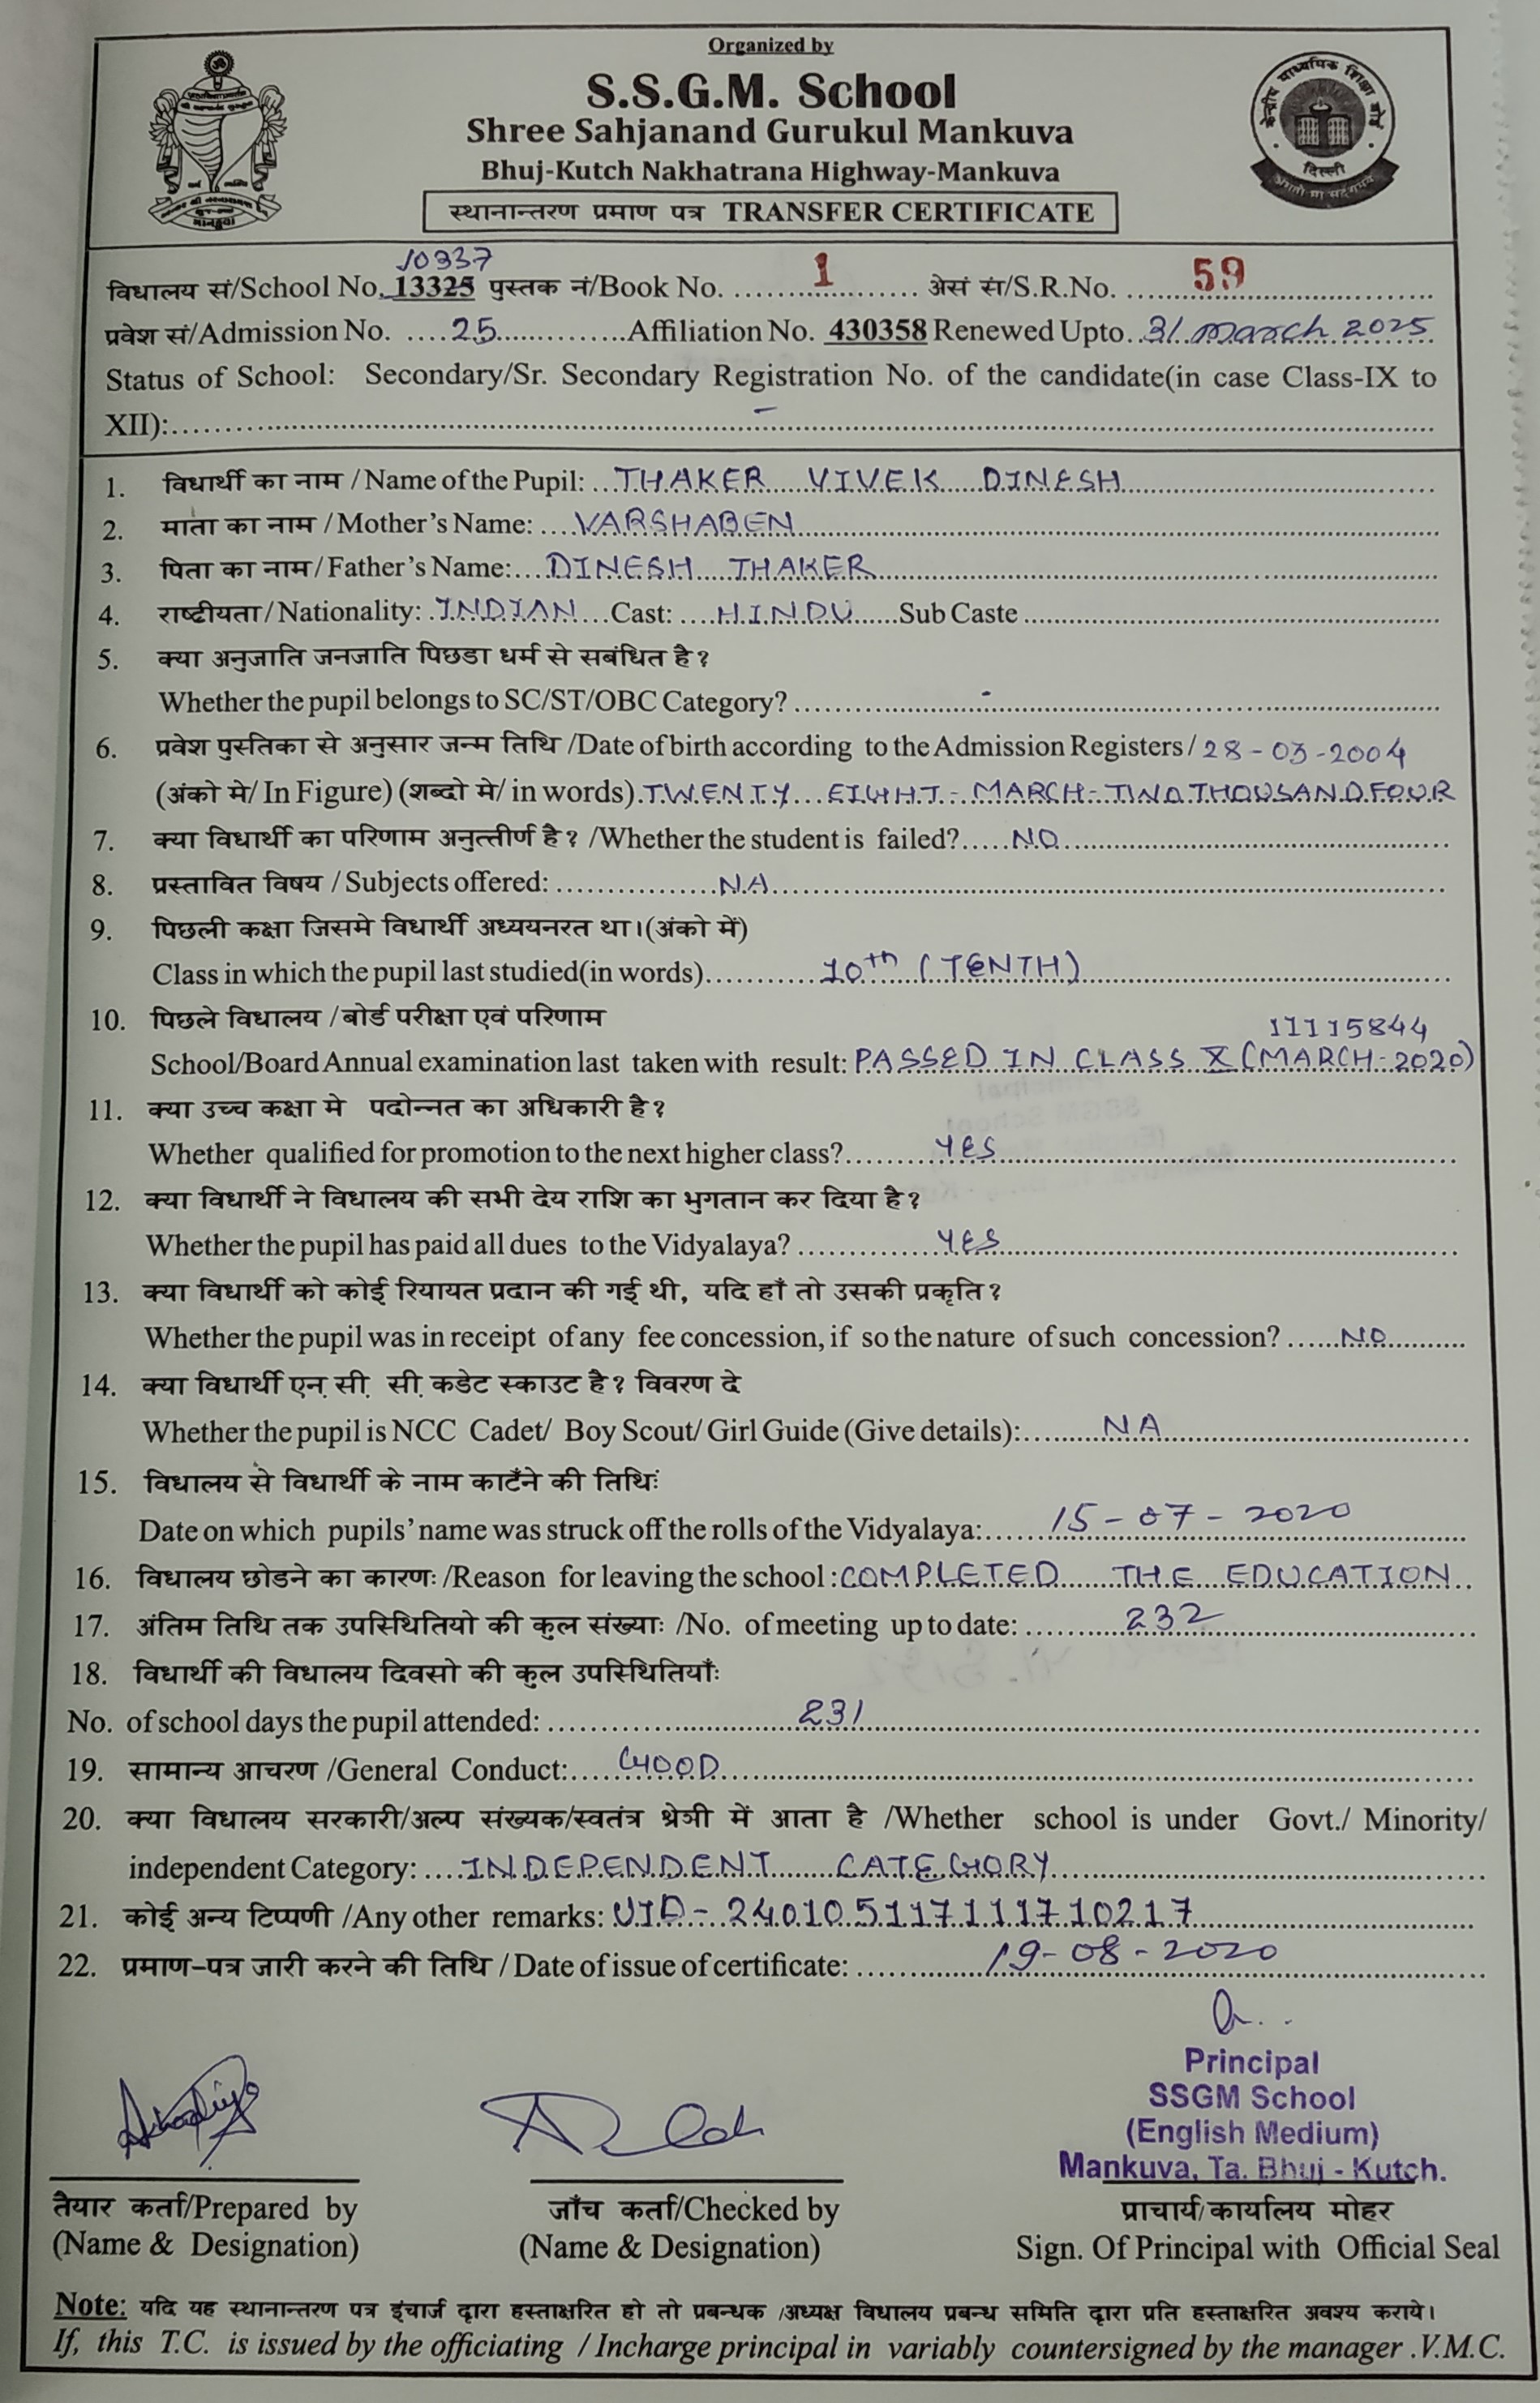 Organized by
S.S.G.M. School
Shree Sahjanand Gurukul Mankuva
Bhuj-Kutch Nakhatrana Highway-Mankuva
स्थानान्तरण प्रमाण पत्र TRANSFER CERTIFICATE
केन्द्रीय माध्यमिक शिक्षा बोर्ड
दिल्ली
10337
विधालय सं/School No. 13325 पुस्तक नं/Book No. 1 अेसं सं/S.R.No. 59
प्रवेश सं/Admission No. 25 Affiliation No. 430358 Renewed Upto. 31 March 2025
Status of School: Secondary/Sr. Secondary Registration No. of the candidate(in case Class-IX to
XII): -
1. विधार्थी का नाम / Name of the Pupil: THAKER VIVEK DINESH
2. माता का नाम / Mother's Name: VARSHABEN
3. पिता का नाम / Father's Name: DINESH THAKER
4. राष्टीयता/ Nationality: INDIAN Cast: HINDU Sub Caste
5. क्या अनुजाति जनजाति पिछडा धर्म से सबंधित है?
Whether the pupil belongs to SC/ST/OBC Category? -
6. प्रवेश पुस्तिका से अनुसार जन्म तिथि /Date of birth according to the Admission Registers / 28-03-2004
(अंको मे/ In Figure) (शब्दो मे/ in words) TWENTY EIGHT - MARCH - TWO THOUSAND FOUR
7. क्या विधार्थी का परिणाम अनुत्तीर्ण है? /Whether the student is failed? NO
8. प्रस्तावित विषय / Subjects offered: NA
9. पिछली कक्षा जिसमे विधार्थी अध्ययनरत था।(अंको में)
Class in which the pupil last studied(in words) 10th (TENTH)
10. पिछले विधालय /बोर्ड परीक्षा एवं परिणाम
11115844
School/Board Annual examination last taken with result: PASSED IN CLASS X (MARCH-2020)
11. क्या उच्च कक्षा मे पदोन्नत का अधिकारी है?
Whether qualified for promotion to the next higher class? YES
12. क्या विधार्थी ने विधालय की सभी देय राशि का भुगतान कर दिया है?
Whether the pupil has paid all dues to the Vidyalaya? YES
13. क्या विधार्थी को कोई रियायत प्रदान की गई थी, यदि हाँ तो उसकी प्रकृति?
Whether the pupil was in receipt of any fee concession, if so the nature of such concession? NO
14. क्या विधार्थी एन. सी. सी. कडेट स्काउट है? विवरण दे
Whether the pupil is NCC Cadet/ Boy Scout/ Girl Guide (Give details): NA
15. विधालय से विधार्थी के नाम काटँने की तिथिः
Date on which pupils' name was struck off the rolls of the Vidyalaya: 15-07-2020
16. विधालय छोडने का कारणः /Reason for leaving the school: COMPLETED THE EDUCATION
17. अंतिम तिथि तक उपस्थितियो की कुल संख्याः /No. of meeting up to date: 232
18. विधार्थी की विधालय दिवसो की कुल उपस्थितियाँः
No. of school days the pupil attended: 231
19. सामान्य आचरण /General Conduct: GOOD
20. क्या विधालय सरकारी/अल्प संख्यक/स्वतंत्र श्रेञी में आता है /Whether school is under Govt./ Minority/
independent Category: INDEPENDENT CATEGORY
21. कोई अन्य टिप्पणी /Any other remarks: UID - 240105117111710217
22. प्रमाण-पत्र जारी करने की तिथि / Date of issue of certificate: 19-08-2020
Principal
SSGM School
(English Medium)
Mankuva, Ta. Bhuj - Kutch.
तैयार कर्ता/Prepared by जाँच कर्ता/Checked by प्राचार्य/कार्यालय मोहर
(Name & Designation) (Name & Designation) Sign. Of Principal with Official Seal
Note: यदि यह स्थानान्तरण पत्र इंचार्ज द्वारा हस्ताक्षरित हो तो प्रबन्धक /अध्यक्ष विधालय प्रबन्ध समिति द्वारा प्रति हस्ताक्षरित अवश्य कराये।
If, this T.C. is issued by the officiating / Incharge principal in variably countersigned by the manager .V.M.C.